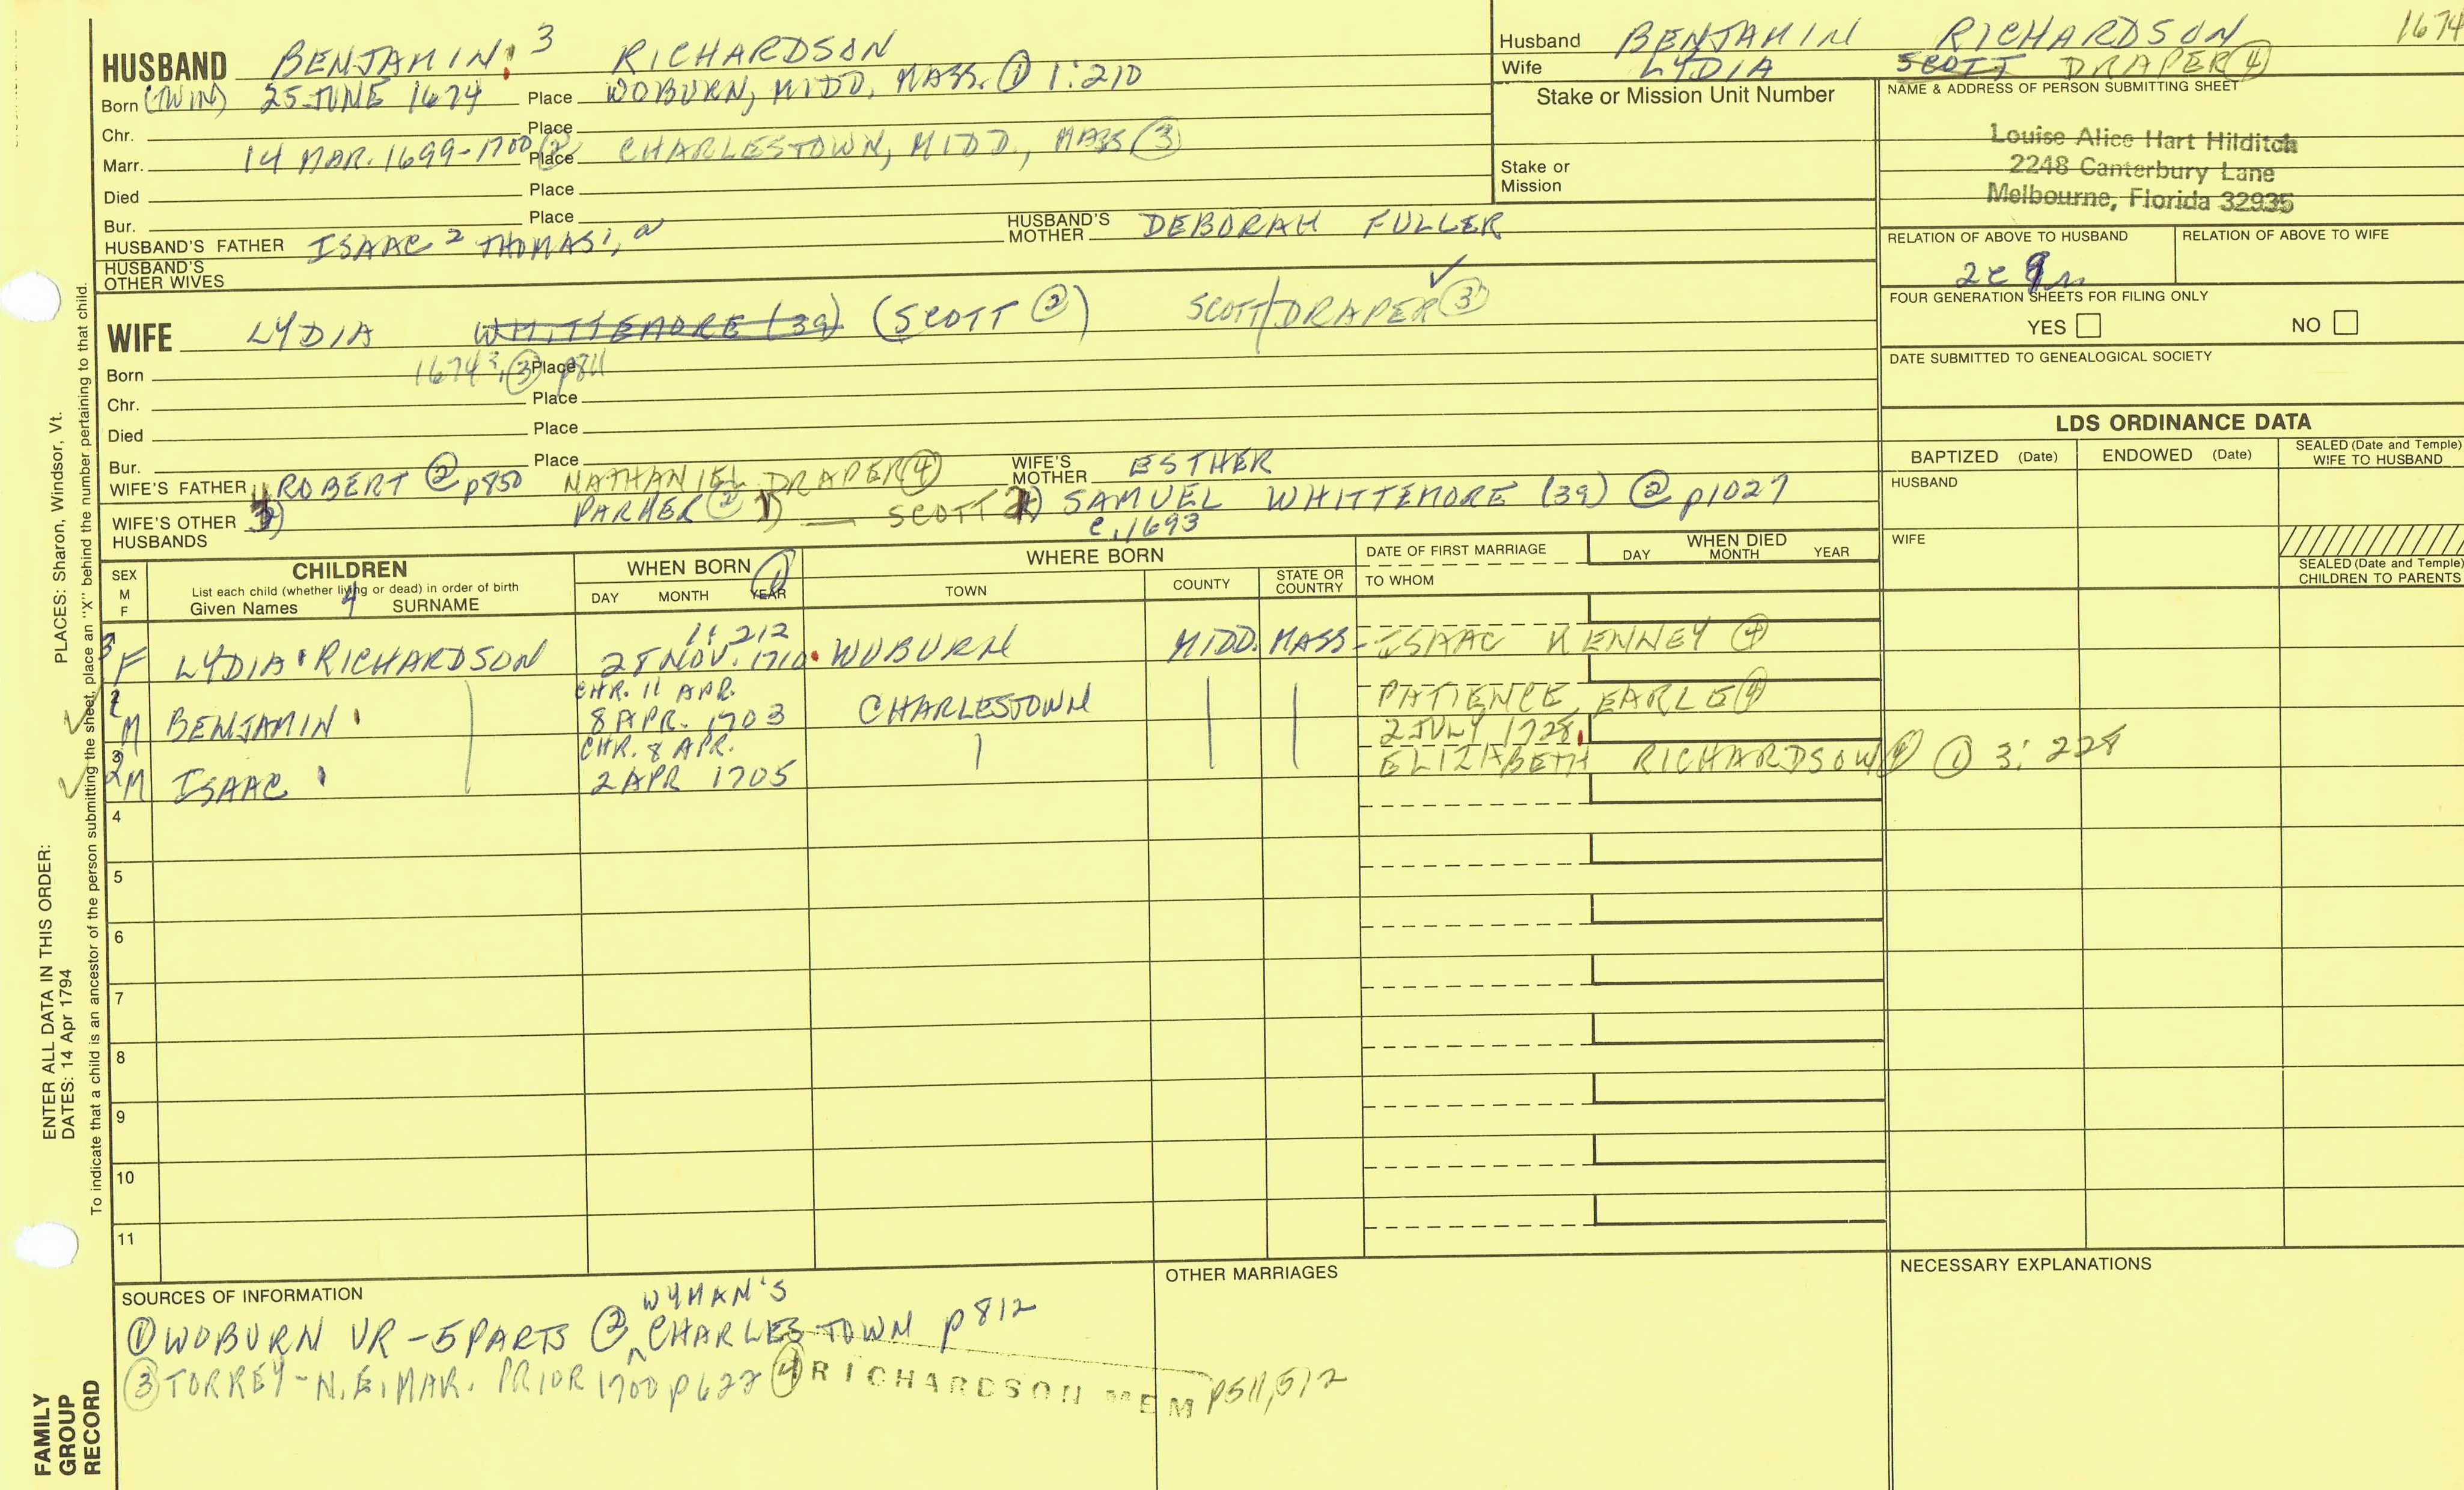 HUSBAND BENJAMIN 3 RICHARDSON
Born (TWIN) 25 JUNE 1674 Place WOBURN, MIDD, MASS. ① 1:210
Chr. Place
Marr. 14 MAR. 1699-1700 ② Place CHARLESTOWN, MIDD., MASS ③
Died Place
Bur. Place
HUSBAND'S FATHER ISAAC 2 THOMAS 1, HUSBAND'S MOTHER DEBORAH FULLER
HUSBAND'S OTHER WIVES
Husband BENJAMIN RICHARDSON 1674
Wife LYDIA SCOTT DRAPER ④
Stake or Mission Unit Number
Stake or Mission
NAME & ADDRESS OF PERSON SUBMITTING SHEET
Louise Alice Hart Hilditch
2248 Canterbury Lane
Melbourne, Florida 32935
RELATION OF ABOVE TO HUSBAND RELATION OF ABOVE TO WIFE
FOUR GENERATION SHEETS FOR FILING ONLY
YES NO
DATE SUBMITTED TO GENEALOGICAL SOCIETY
WIFE LYDIA WHITTEMORE (39) (SCOTT ②) SCOTT/DRAPER ③
Born 1674?, ③ Place p811
Chr. Place
Died Place
Bur. Place
WIFE'S FATHER ROBERT ② p850 NATHANIEL DRAPER ④ WIFE'S MOTHER ESTHER
WIFE'S OTHER HUSBANDS 3) PARKER ② 1) — SCOTT 2) SAMUEL WHITTEMORE (39) ② p1027
c. 1693
LDS ORDINANCE DATA
BAPTIZED (Date) ENDOWED (Date) SEALED (Date and Temple) WIFE TO HUSBAND
HUSBAND
WIFE
SEALED (Date and Temple) CHILDREN TO PARENTS
SEX M F
CHILDREN
List each child (whether living or dead) in order of birth
Given Names 4 SURNAME
WHEN BORN ①
DAY MONTH YEAR
WHERE BORN
TOWN COUNTY STATE OR COUNTRY
DATE OF FIRST MARRIAGE
TO WHOM
WHEN DIED
DAY MONTH YEAR
1: 212
3 F LYDIA RICHARDSON 25 NOV. 1710 WOBURN MIDD. MASS- ISAAC KENNEY ④
CHR. 11 APR.
M BENJAMIN 8 APR. 1703 CHARLESTOWN PATIENCE EARLE ④
CHR. 8 APR. 2 JULY 1728
2 M ISAAC 2 APR 1705 ELIZABETH RICHARDSON ④ ① 3: 228
4
5
6
7
8
9
10
11
SOURCES OF INFORMATION
WYMAN'S
① WOBURN VR - 5 PARTS ② CHARLESTOWN p812
③ TORREY - N.E. MAR. PRIOR 1700 p622 ④ RICHARDSON MEM p511,512
OTHER MARRIAGES
NECESSARY EXPLANATIONS
PLACES: Sharon, Windsor, Vt.
To indicate that a child is an ancestor of the person submitting the sheet, place an "X" behind the number pertaining to that child.
ENTER ALL DATA IN THIS ORDER:
DATES: 14 Apr 1794
FAMILY
GROUP
RECORD